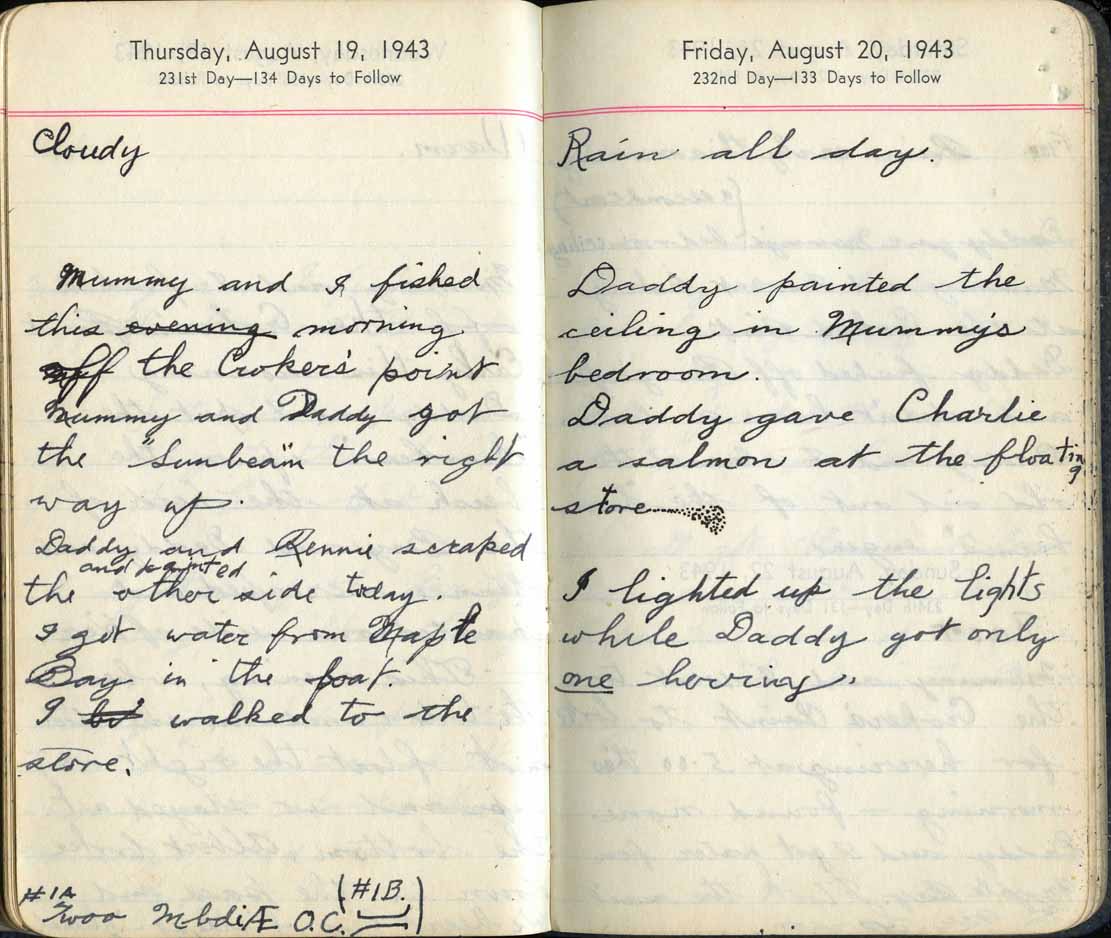 Thursday, August 19, 1943
231st Day—134 Days to Follow
Cloudy
Mummy and I fished
this evening morning
off the Croker's point
Mummy and Daddy got
the "Sunbeam" the right
way up.
Daddy and Rennie scraped
and painted
the other side today.
I got water from Maple
Bay in the boat.
I walked to the
store.
#1A (#1B.)
O.C.
Friday, August 20, 1943
232nd Day—133 Days to Follow
Rain all day.
Daddy painted the
ceiling in Mummy's
bedroom.
Daddy gave Charlie
a salmon at the floating
store
I lighted up the lights
while Daddy got only
one herring.